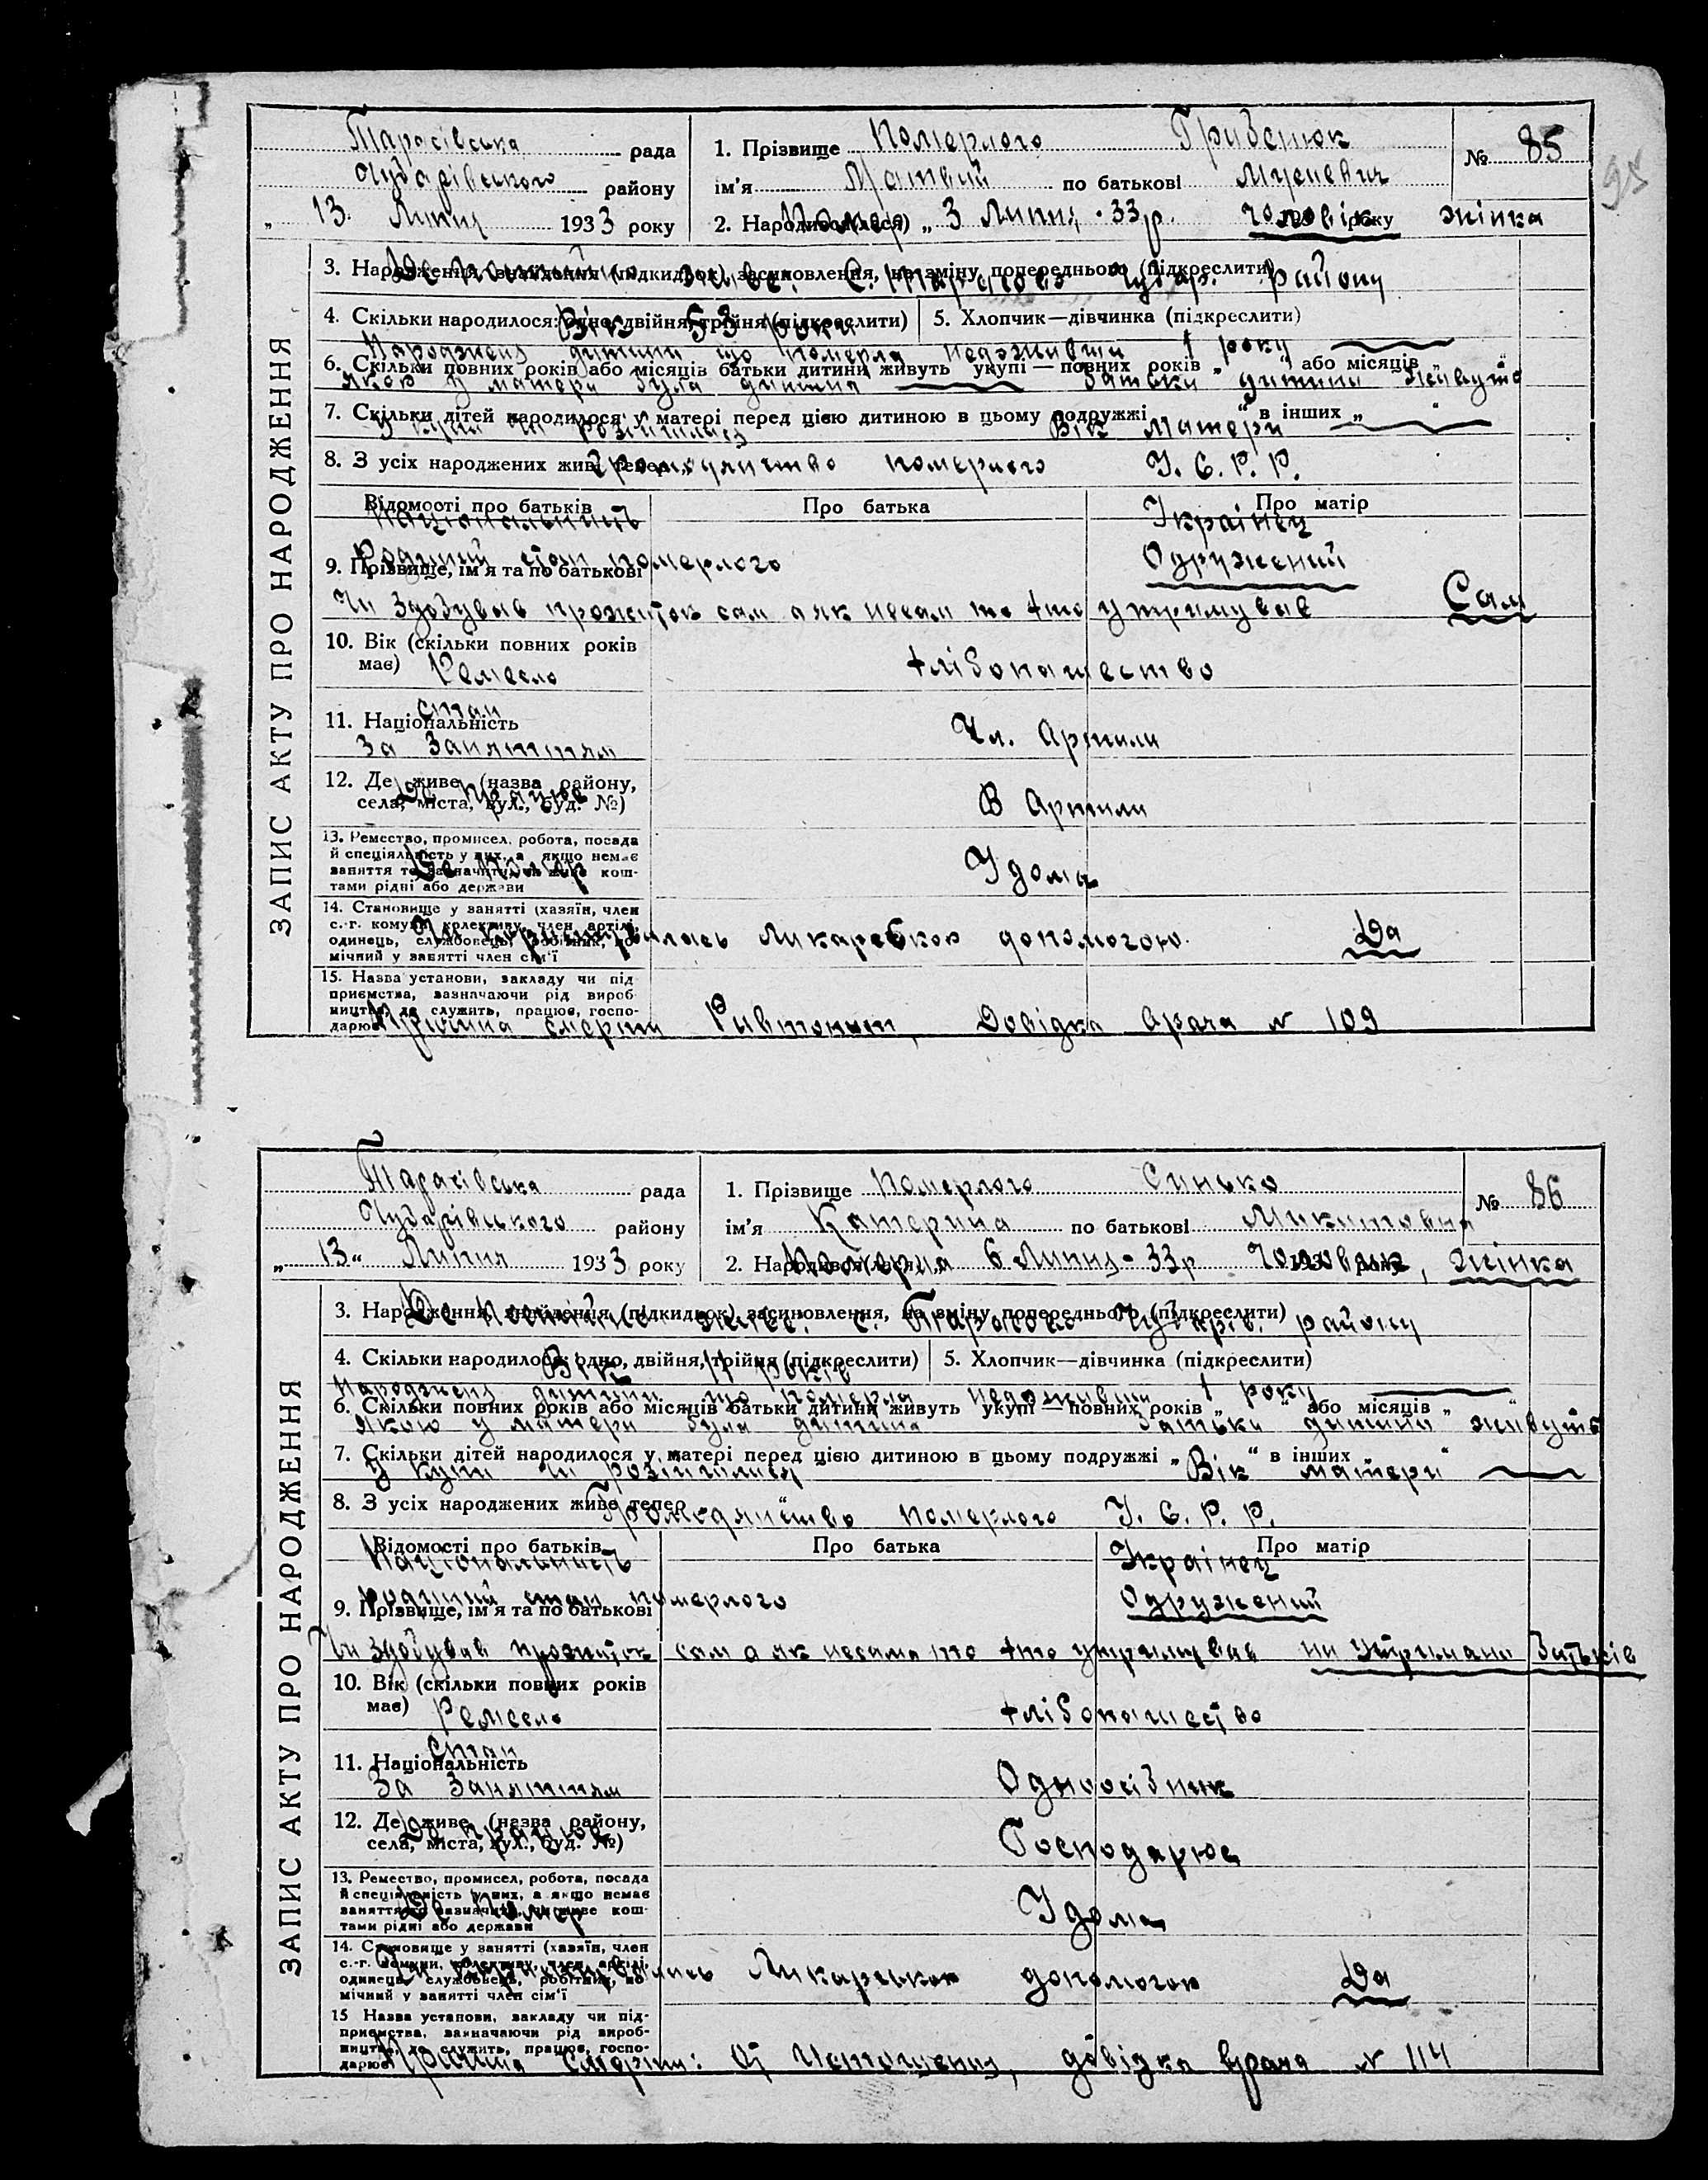 Тарасівська рада
Чубарівського району
„ 13 Липня 1933 року
1. Прізвище Померлого Грибенюк
№ 85
95
ім'я Матвий по батькові
2. Народився(лася) Помер „ 3 Липня - 33 р. чоловік року жінка
ЗАПИС АКТУ ПРО НАРОДЖЕННЯ
3. Народження, знайдення (підкидьок), засиновлення, на зміну попереднього (підкреслити)
Де постійно живе: С. Тарасовка Чубар. району
4. Скільки народилося: одно, двійня, трійня (підкреслити) 5. Хлопчик—дівчинка (підкреслити)
Вік 53 роки
Народженя дитини що померла недоживши 1 року
6. Скільки повних років або місяців батьки дитини живуть укупі — повних років „ “ або місяців „ “
якою у матери була дитина батьки дитини живуть
7. Скільки дітей народилося у матері перед цією дитиною в цьому подружжі “ в інших „ “
у купи чи розійшлись Вік матери
8. З усіх народжених живе тепер
Громодянство померлого У. С. Р. Р.
Відомості про батьків Про батька Про матір
Національність Українец
Родиний стан померлого Одружений
9. Прізвище, ім'я та по батькові
Чи здобував прожиток сам а як несам то хто утримував Сам
10. Вік (скільки повних років
має) Ремесло хлібопашество
стан
11. Національність
За Заняттям Чл. Артили
12. Де живе (назва району,
села, міста, вул., буд. №)
Де працює В Артили
13. Ремество, промисел, робота, посада
й спеціяльність у них, а якщо немає
заняття то зазначити чи живе кош-
тами рідні або держави
Де помер Удома
14. Становище у занятті (хазяїн, член
с.-г. комуни, колективу, член артілі,
одинець, службовець, робітник, по-
мічний у занятті член сім'ї
Чи користувалась ликарською допомогою. Да
15. Назва установи, закладу чи під-
приємства, зазначаючи рід вироб-
ництва, де служить, працює, госпо-
дарює
Причина смерти Довідка врача № 109
Тарасівська рада
Чубарівського району
„ 13 “ Липня 1933 року
1. Прізвище Померлого Синько
№ 86
ім'я Катерина по батькові Микитовна
2. Народився(лася) Померла 6 Липня - 33 р чоловік, жінка
ЗАПИС АКТУ ПРО НАРОДЖЕННЯ
3. Народження, знайдення (підкидьок), засиновлення, на зміну попереднього (підкреслити)
Де постійно живе: С. Тарасовка Чубарів. району
4. Скільки народилося: одно, двійня, трійня (підкреслити) 5. Хлопчик—дівчинка (підкреслити)
Вік років
Народженя дитини що померла недоживши 1 року
6. Скільки повних років або місяців батьки дитини живуть укупі — повних років „ “ або місяців „ “
якою у матери була дитина батьки дитини живуть
7. Скільки дітей народилося у матері перед цією дитиною в цьому подружжі „ “ в інших „ “
у купи чи розійшлися Вік матери
8. З усіх народжених живе тепер
Громодянство померлого У. С. Р. Р.
Відомості про батьків Про батька Про матір
Національність Українец
родиний стан померлого Одружений
9. Прізвище, ім'я та по батькові
Чи здобував прожиток сам а як несама то хто утримував на утримані батьків
10. Вік (скільки повних років
має) Ремесло хлібопашество
стан
11. Національність
За Заняттям Одноосібник
12. Де живе (назва району,
села, міста, вул., буд. №)
Де працює Господарює
13. Ремество, промисел, робота, посада
й спеціяльність у них, а якщо немає
заняття то зазначити, чи живе кош-
тами рідні або держави
Де помер Удома
14. Становище у занятті (хазяїн, член
с.-г. комуни, колективу, член артілі,
одинець, службовець, робітник, по-
мічний у занятті член сім'ї
Чи користувалась Ликарською допомогою Да
15 Назва установи, закладу чи під-
приємства, зазначаючи рід вироб-
ництва, де служить, працює, госпо-
дарює
Причина смерти: От Истощения, довідка врача № 114